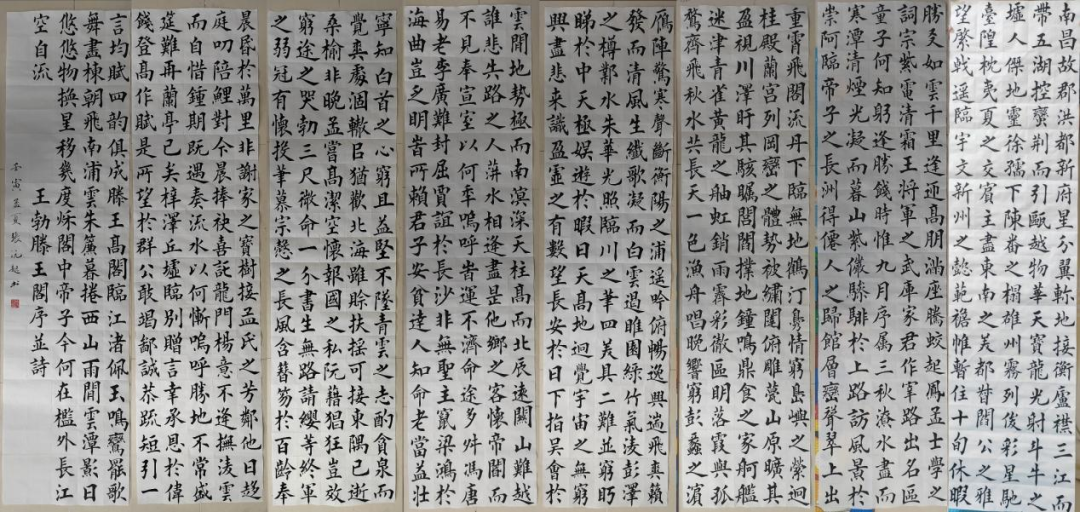 南昌故郡洪都新府星分翼軫地接衡廬襟三江而
帶五湖控蠻荊而引甌越物華天寶龍光射斗牛之
墟人傑地靈徐孺下陳蕃之榻雄州霧列俊彩星馳
臺隍枕夷夏之交賓主盡東南之美都督閻公之雅
望棨戟遥臨宇文新州之懿範襜惟暫住十旬休暇
勝友如雲千里逢迎高朋滿座騰蛟起鳳孟士學之
詞宗紫電清霜王將軍之武庫家君作宰路出名區
童子何知躬逢勝餞時惟九月序属三秋潦水盡而
寒潭清煙光凝而暮山紫儼驂騑於上路訪風景於
崇阿臨帝子之長洲得僊人之歸館層巒聳翠上出
重霄飛閣流丹下臨無地鶴汀鳧渚窮島嶼之縈迴
桂殿蘭宮列岡巒之體勢披繡闥俯雕甍山原曠其
盈視川澤盱其駭矚閭閻撲地鐘鳴鼎食之家舸艦
迷津青雀黃龍之舳虹銷雨霽彩徹區明落霞與孤
鶩齊飛秋水共長天一色漁舟唱晚響窮彭蠡之濱
雁陣驚寒聲斷衡陽之浦遥吟俯暢逸興遄飛爽籟
發而清風生纖歌凝而白雲遏睢園綠竹氣凌彭澤
之樽鄴水朱華光照臨川之筆四美具二難並窮眄
睇於中天極娛遊於暇日天高地迥覺宇宙之無窮
興盡悲來識盈虛之有數望長安於日下指吳會於
雲間地勢極而南溟深天柱高而北辰遠關山難越
誰悲失路之人萍水相逢盡是他鄉之客懷帝閽而
不見奉宣室以何年嗚呼旹運不濟命途多舛馮唐
易老李廣難封屈賈誼於長沙非無聖主竄梁鴻於
海曲豈乏明旹所賴君子安貧達人知命老當益壯
寧知白首之心窮且益堅不墜青雲之志酌貪泉而
覺爽處涸轍以猶歡北海雖賒扶搖可接東隅已逝
桑榆非晚孟嘗高潔空懷報國之私阮籍猖狂豈效
窮途之哭勃三尺微命一介書生無路請纓等終軍
之弱冠有懷投筆慕宗愨之長風舍簪笏於百齡奉
晨昏於萬里非謝家之寶樹接孟氏之芳鄰他日趨
庭叨陪鯉對今晨捧袂喜託龍門楊意不逢撫凌雲
而自惜鍾期既遇奏流水以何慚嗚呼勝地不常盛
筵難再蘭亭已矣梓澤丘墟臨別贈言幸承恩於偉
餞登高作賦是所望於群公敢竭鄙誠恭疏短引一
言均賦四韵俱成滕王高閣臨江渚佩玉鳴鸞罷歌
舞畫棟朝飛南浦雲朱簾暮捲西山雨閒雲潭影日
悠悠物換星移幾度秋閣中帝子今何在檻外長江
空自流
王勃滕王閣序並詩
壬寅孟夏張